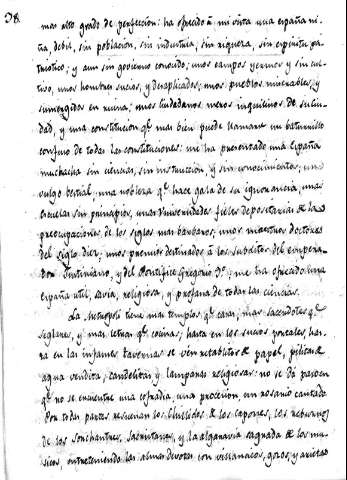 38.
mas alto grado de perfeccion: ha ofrecido á mi vista una españa ni-
ña, debil, sin poblacion, sin industria, sin riqueza, sin espiritu pa-
triotico; y aun sin govierno conocido; unos campos yermos y sin cul-
tivo, unos hombres sucios, y desaplicados; unos pueblos miserables, y
sumergidos en ruina; unos ciudadanos meros inquilinos de su ciu-
dad, y una constitucion qe. mas bien puede llamarse un baturrillo
confuso de todas las constituciones: me ha presentado una España
muchacha sin ciencias, sin instruccion, y sin conocimientos; un
vulgo bestial; una nobleza qe. hace gala de su ignorancia; unas
escuelas sin principios, unas Vniversidades fieles depositarias de las
preocupaciones de los siglos mas barbaros; unos maestros doctores
del siglo diez, unos premios destinados á los subditos del empera-
dor Justiniano, y del Pontifice Gregorio 9º, me ha ofrecido una
españa util, savia, religiosa, y profana de todas las ciencias.
La metropoli tiene mas templos qe. casas, mas sacerdotes qe.
seglares, y mas altares qe. cocinas; hasta en los sucios portales, has-
ta en las infames tavernas se ven retablitos de papel,
agua vendita, candelitas y lamparas religiosas: no se dá paso en
qe. no se encuentre una cofradia, una procesion, un rosario cantado
Por todas partes resuenan los chillidos de los capones, los rebuznos
de los sochantres, y la algaravia sagrada de los mu-
sicos entreteniendo las almas devotas con villancicos, gozos, y arietas